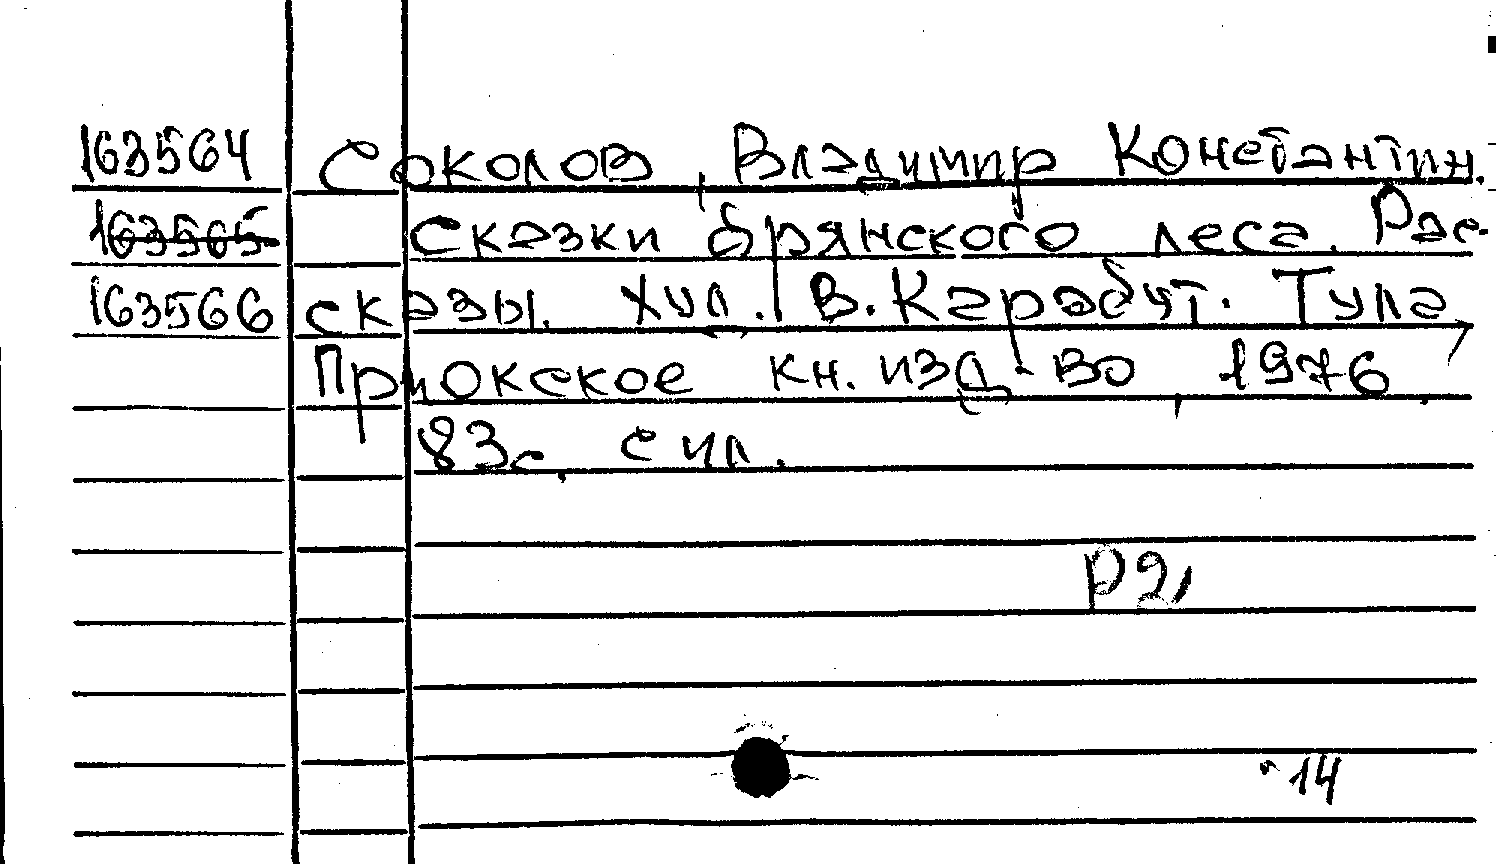 163564 Соколов, Владимир Константин.
163565 Сказки брянского леса. Рас-
163566 сказы. Худ. В. Карабут. Тула,
Приокское кн. изд-во, 1976.
83с. с ил.
Р2,
14